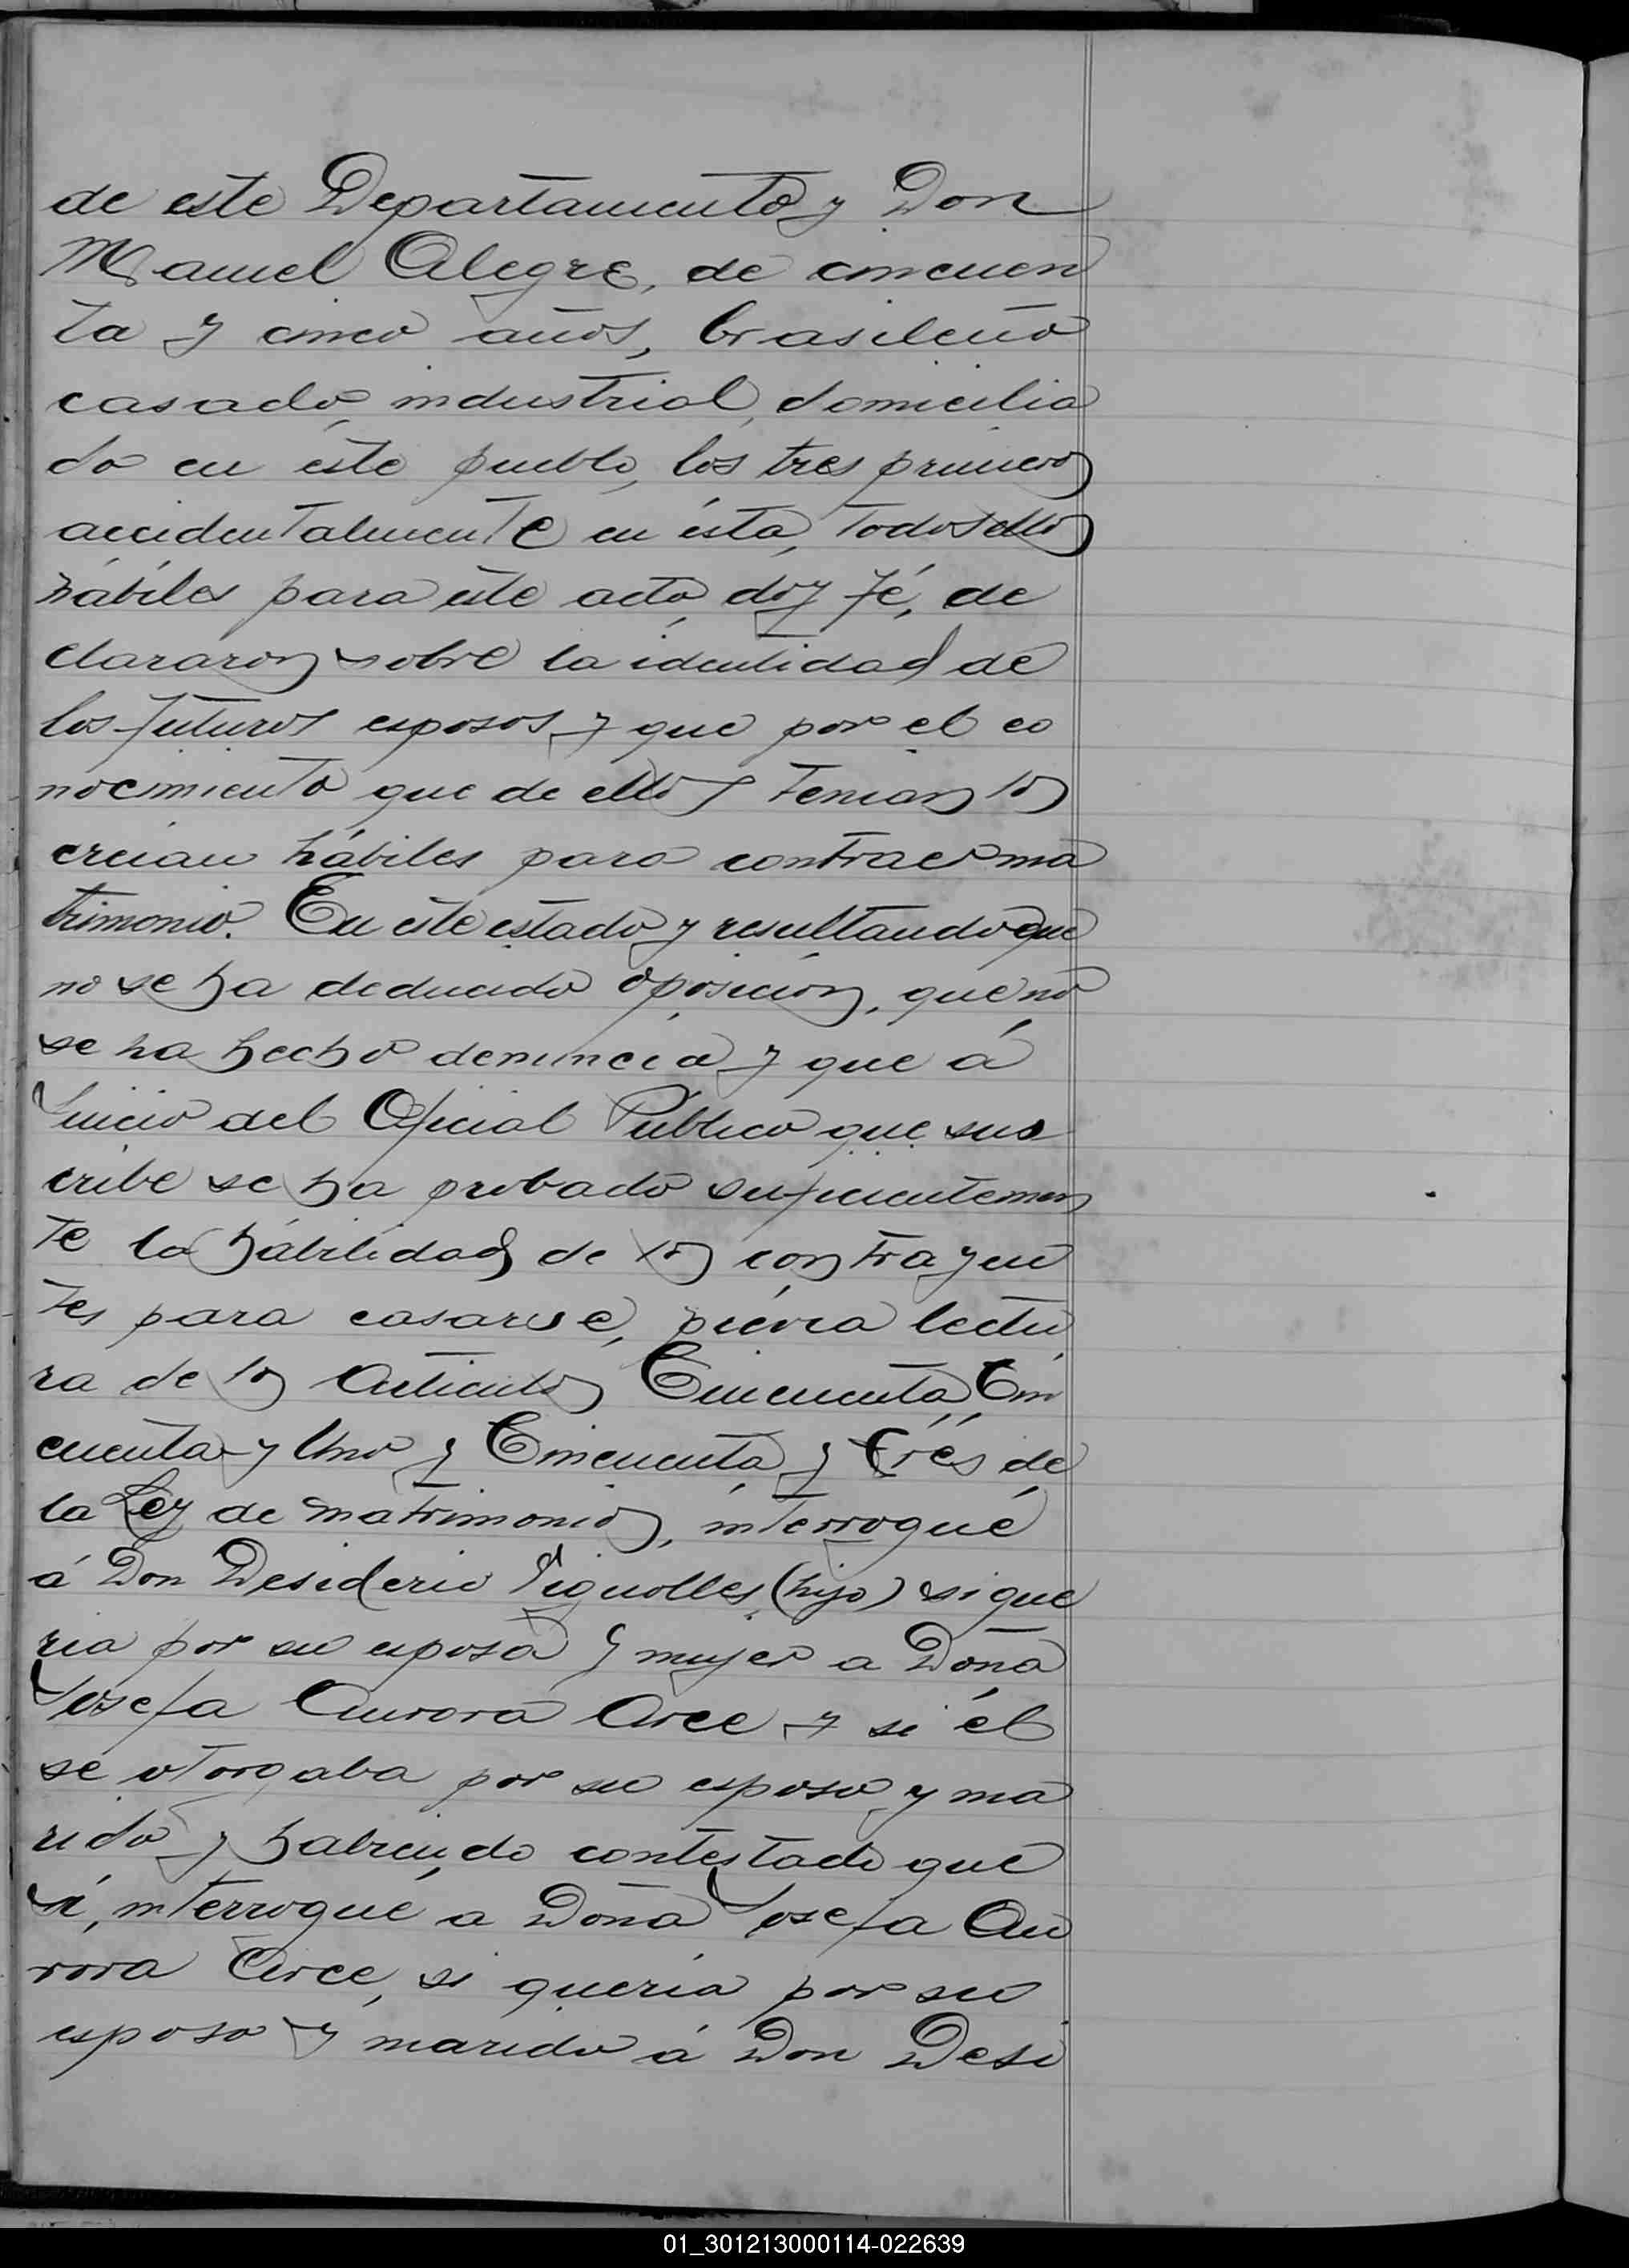 de este Departamento y Don
Manuel Alegre, de cincuen
ta y cinco años, brasileño
casado, industrial, domicilia
do en este pueblo, los tres primeros
accidentalmente en ésta, todos ellos
hábiles para este acto, doy fé, de
clararon sobre la identidad de
los futuros esposos y que por el co
nocimiento que de ellos tenian los
creian hábiles para contraer ma
trimonio. En este estado y resultando que
no se ha deducido oposicion, que no
se ha hecho denuncia y que á
Juicio del Oficial Público que sus
cribe se ha probado suficientemen
te la habilidad de los contrayen
tes para casarse, prévia lectu
ra de los Articulos Cincuenta, Cin
cuenta y Uno y Cincuenta y Tres de
la Ley de matrimonios, interrogué
á Don Desiderio Vignolles, (hijo) si que
ria por su esposa y mujer a Doña
Josefa Aurora Arce y si él
se otorgaba por su esposo y ma
rido y habiendo contestado que
sí, interrogué a Doña Josefa Au
rora Arce, si queria por su
esposo y marido á Don Desi
01_301213000114-022639